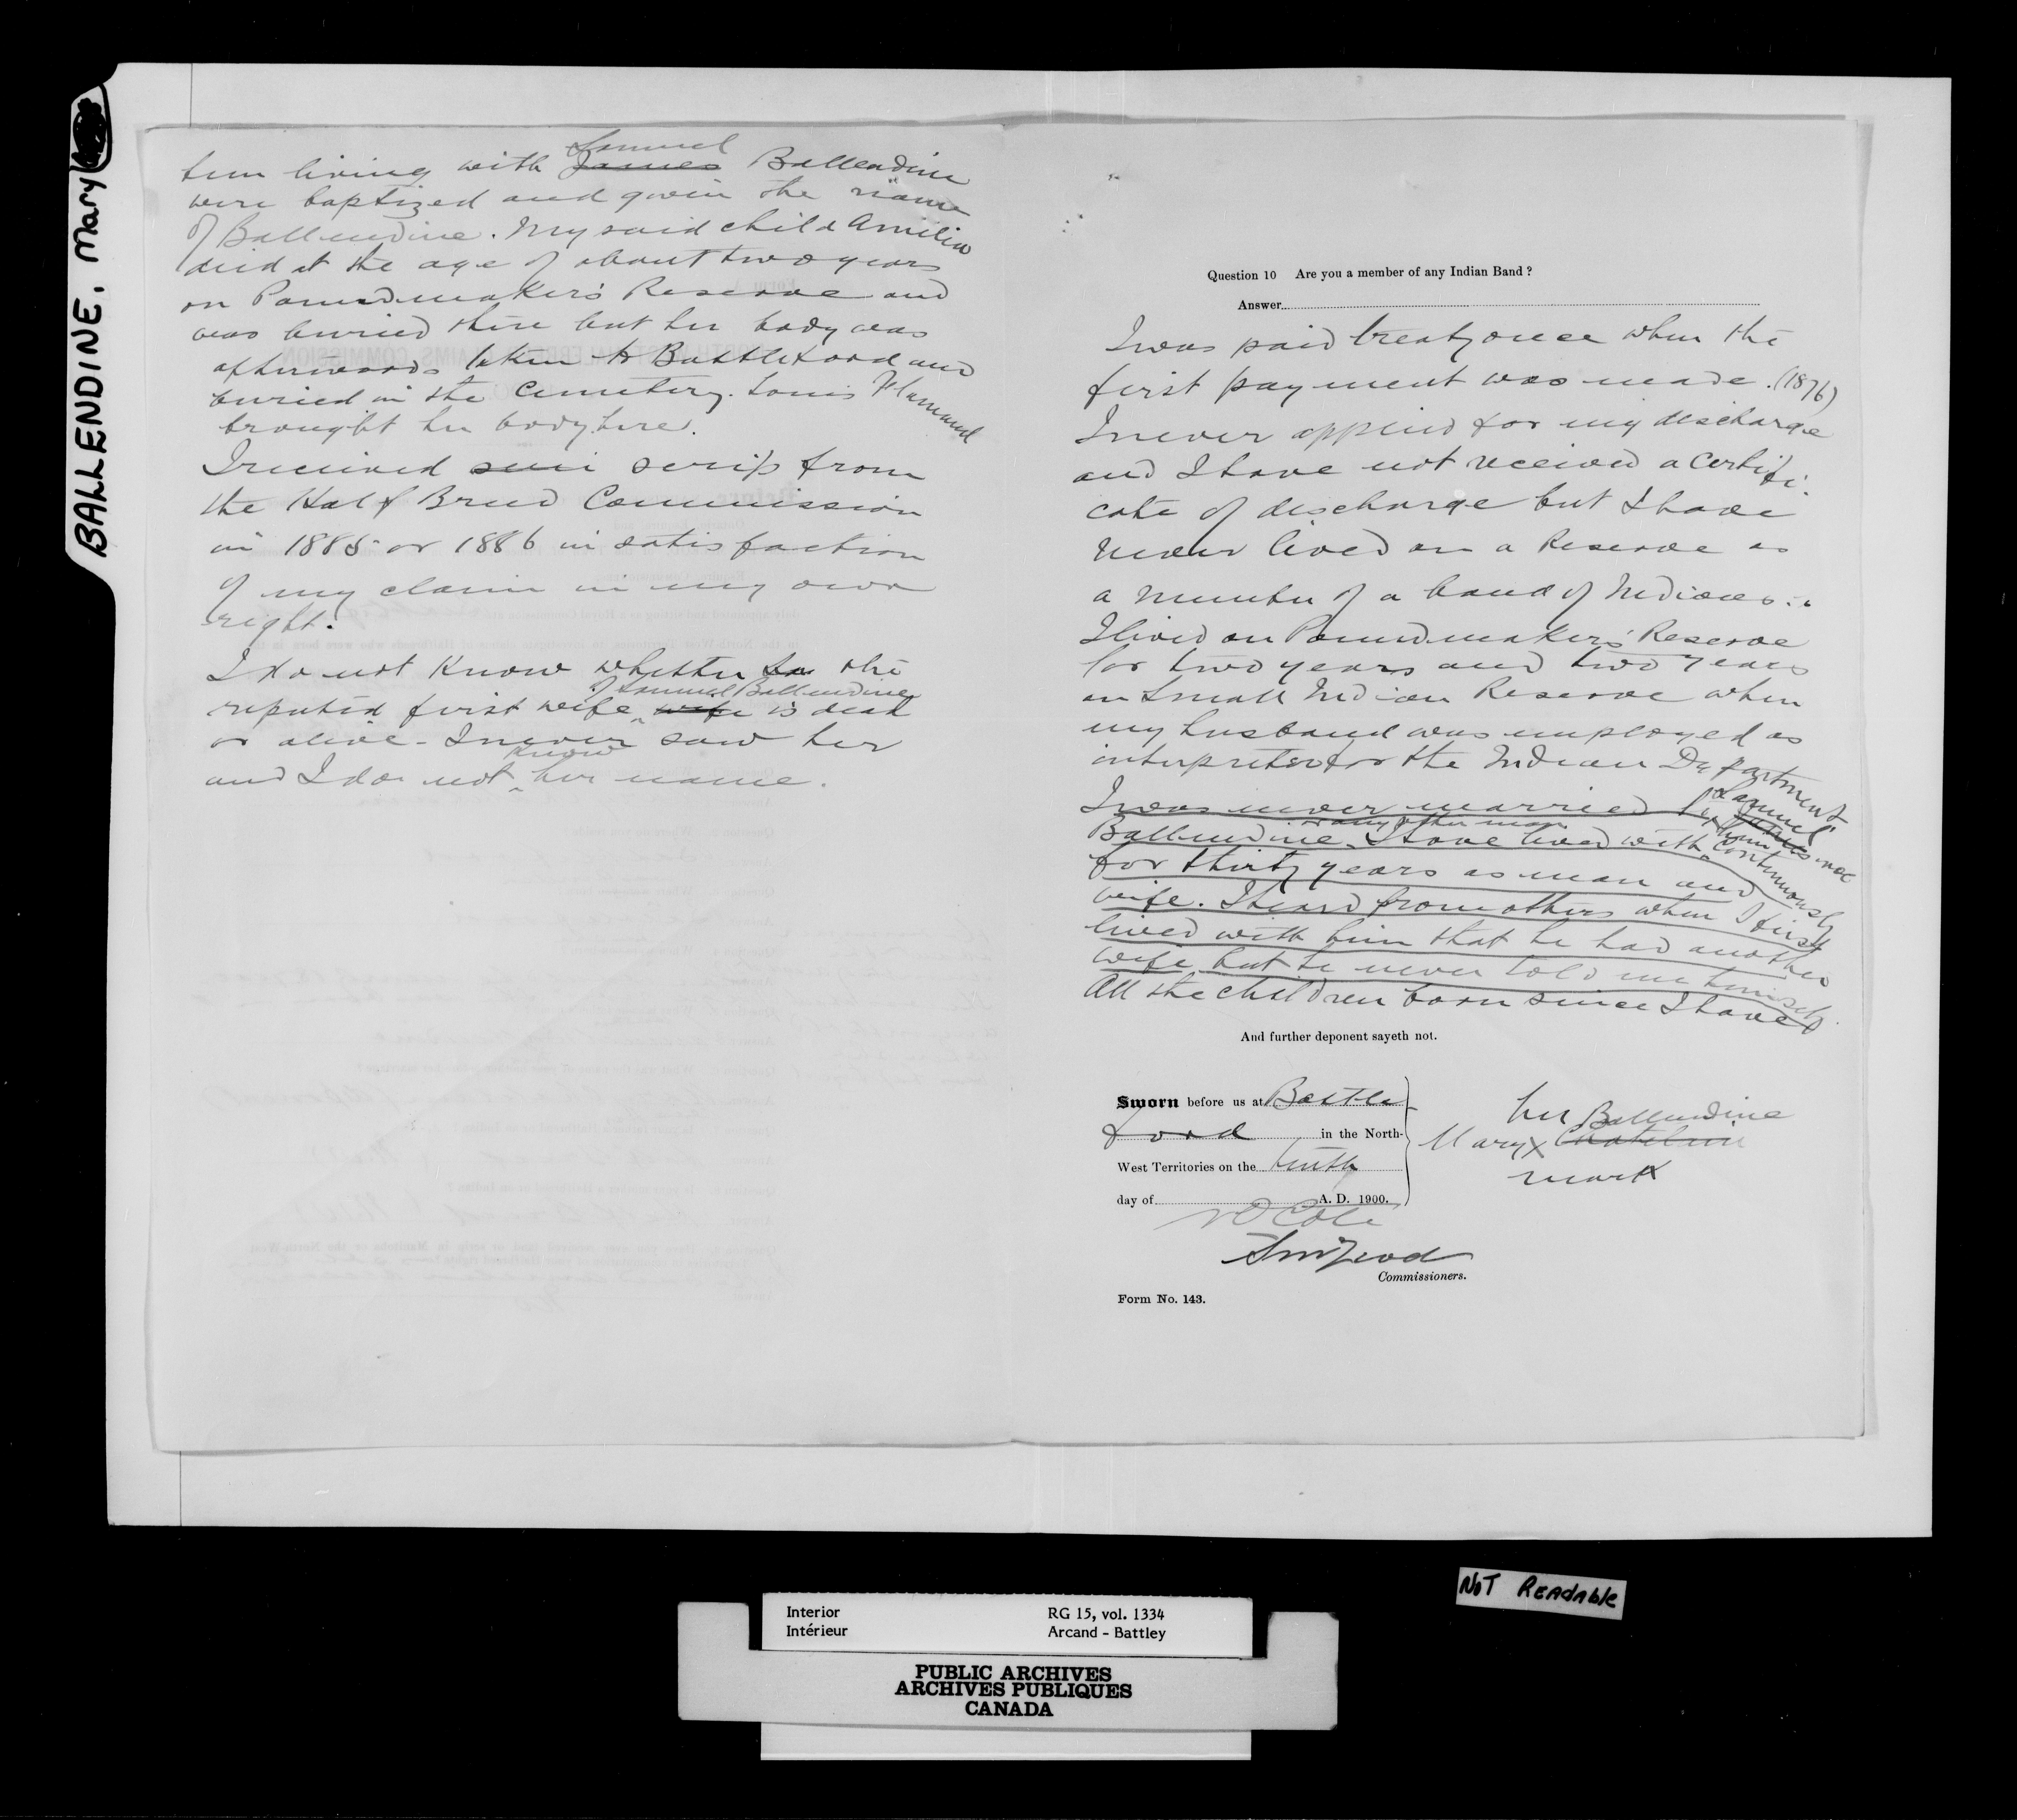 BALLENDINE, Mary
been living with James Samuel Ballendine
were baptized and given the name
of Ballendine. My said child Amelia
died at the age of about two years
on Poundmaker's Reserve and
was buried there but her body was
afterwards taken to Battleford and
buried in the Cemetery. Louis Plamand
brought her body here.
I received scrip from
the Half Breed Commission
in 1885 or 1886 in satisfaction
of my claim in my own
right.
I do not know whether the
reputed first wife of Samuel Ballendine wife is dead
or alive - I never saw her
and I do not know her name.
Question 10 Are you a member of any Indian Band ?
Answer
I was paid treaty once when the
first payment was made. (1876)
I never applied for my discharge
and I have not received a certifi-
cate of discharge but I have
never lived on a Reserve as
a member of a band of Indians.
I lived on Poundmaker's Reserve
for two years and two years
on Small Indian Reserve when
my husband was employed as
interpreter for the Indian Department
I was never married by James Samuel
Ballendine or any other man. I have lived with him continuously
for thirty years as man and
wife. I heard from others when I first
lived with him that he had another
wife but he never told me himself.
All the children born since I have
And further deponent sayeth not.
Sworn before us at Battle
ford in the North-
West Territories on the tenth
day of A. D. 1900.
her Ballendine
Mary X Chatelain
mark
N O Cote
Commissioners.
Form No. 143.
NOT READABLE
Interior RG 15, vol. 1334
Intérieur Arcand - Battley
PUBLIC ARCHIVES
ARCHIVES PUBLIQUES
CANADA